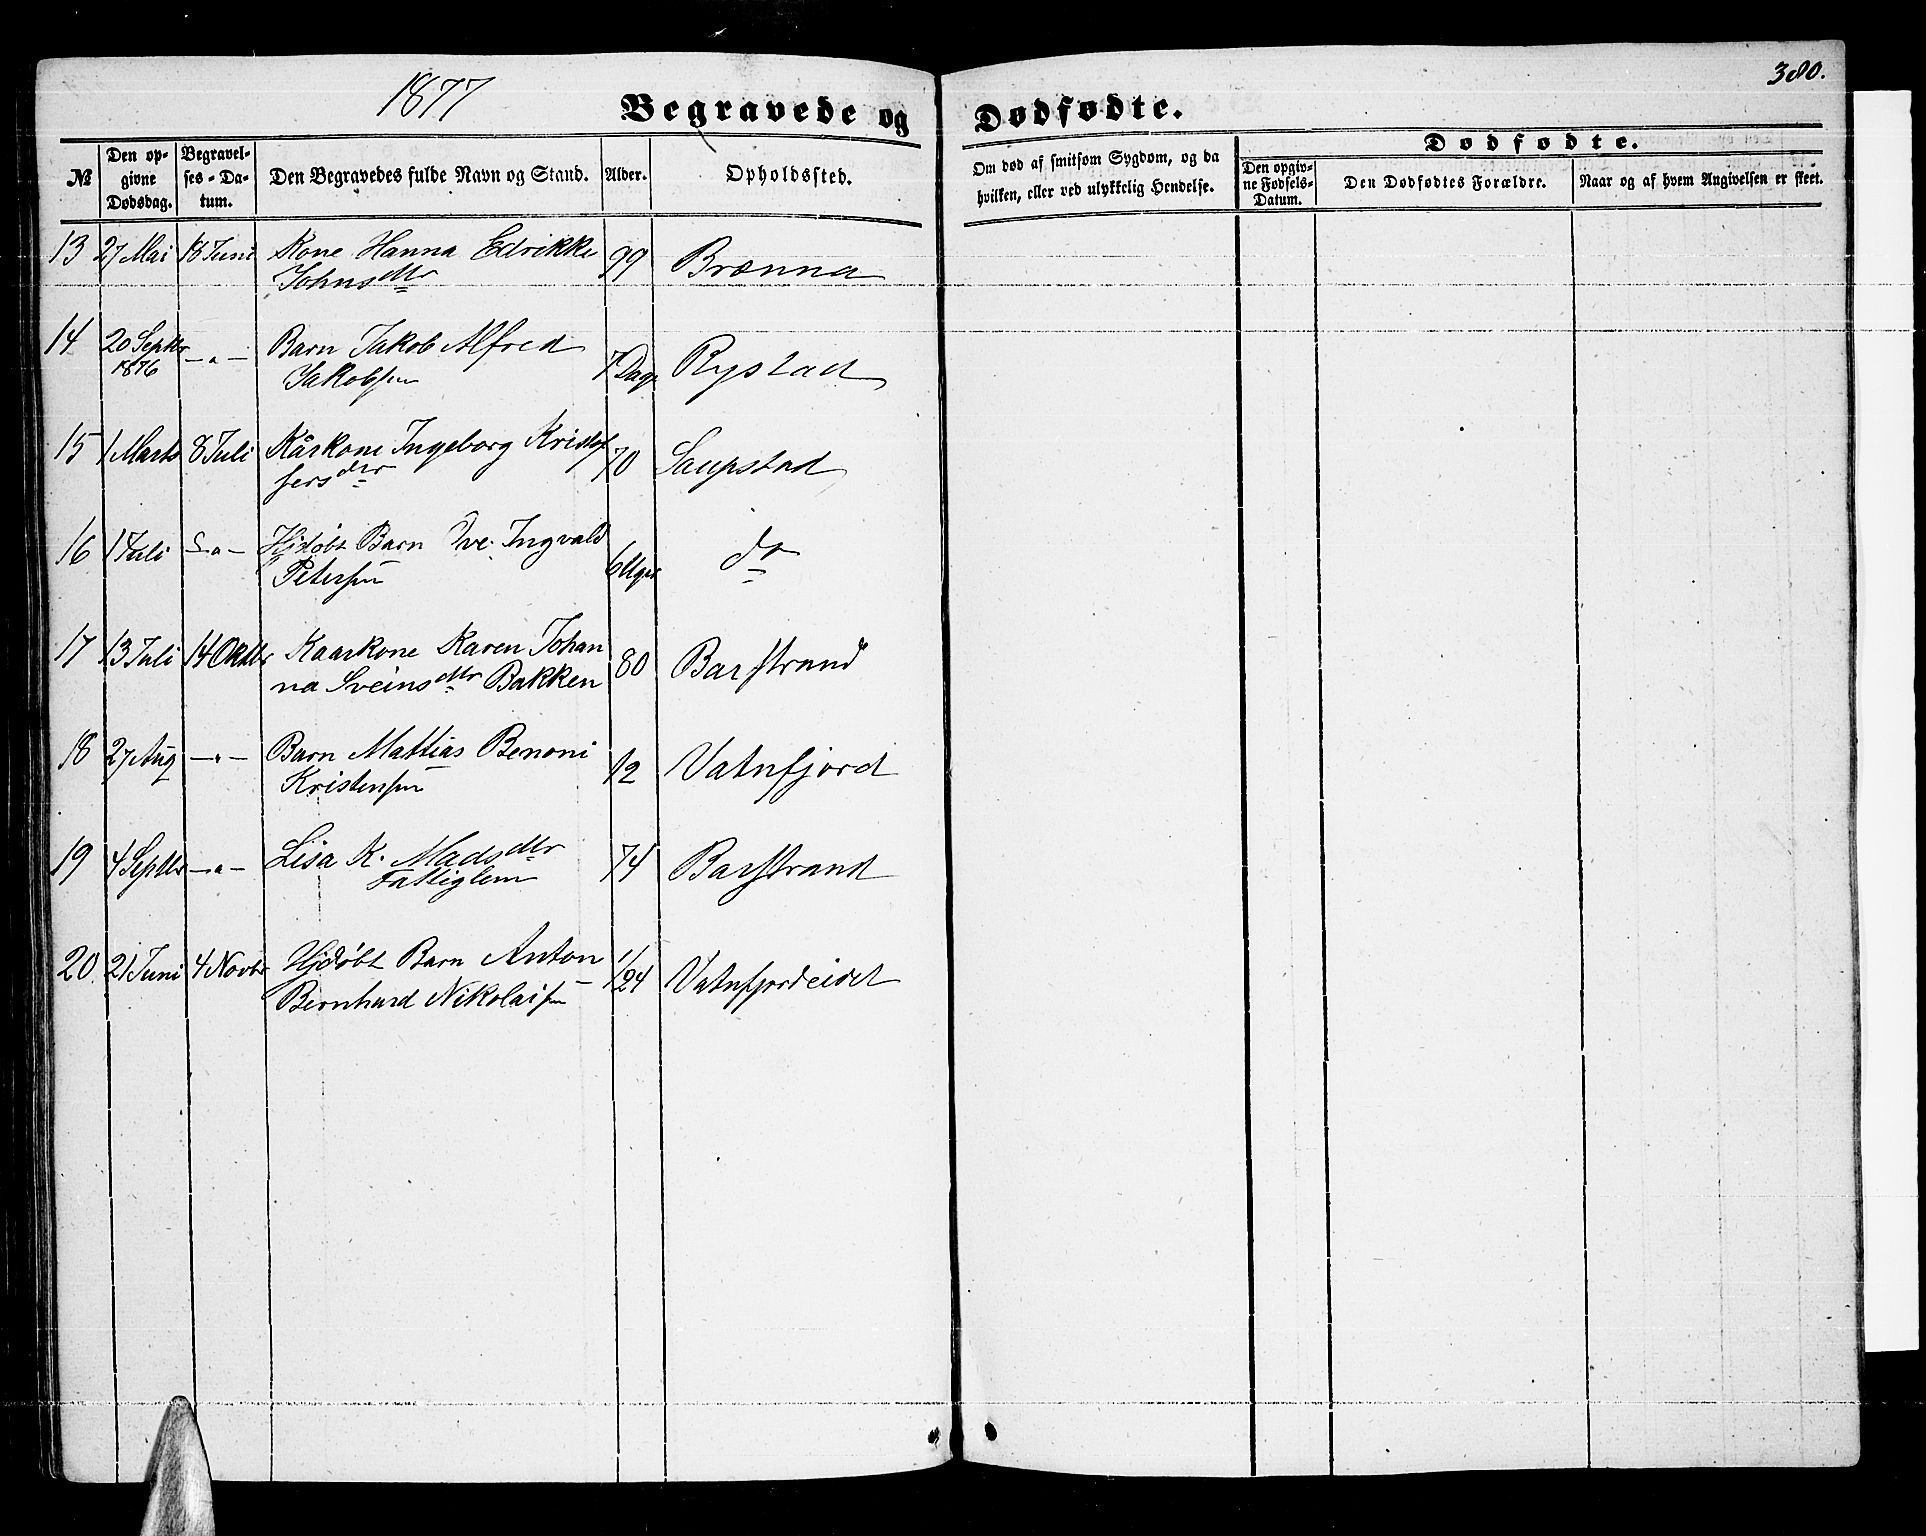 1877
380.
Begravede og Dødfødte.
Dødfødte.
№
Den opgivne Dødsdag.
Begravelses-Datum.
Den Begravedes fulde Navn og Stand.
Alder.
Opholdssted.
Om død af smitsom Sygdom, og da hvilken, eller ved ulykkelig Hendelse.
Den opgivne Fødsels-Datum.
Den Dødfødtes Forældre.
Naar og af hvem Angivelsen er skeet.
13 27 Mai 18 Juni Kone Hanna Edrikke 99 Brænna
Johnsdtr
14 20 Septbr 1876 —"— Barn Jakob Alfred 7 Dage Rystad
Jakobsen
15 1 Marts 8 Juli Kårkone Ingeborg Kristof 70 Saupstad
fersdtr
16 1 Juli —"— Hjdøbt Barn Ingvald 6 Uger do
Petersen
17 13 Juli 14 Oktbr Kaarkone Karen Johan 80 Barstrand
na Sveinsdtr Bakken
18 27 Aug —"— Barn Mattias Benoni 12 Vatnfjord
Kristensen
19 4 Septbr —"— Lisa K. Madsdtr 74 Barstrand
Fattiglem
20 21 Juni 4 Novbr Hjdøbt Barn Anton 1/24 Vatnfjordeidet
Bernhard Nikolaisen